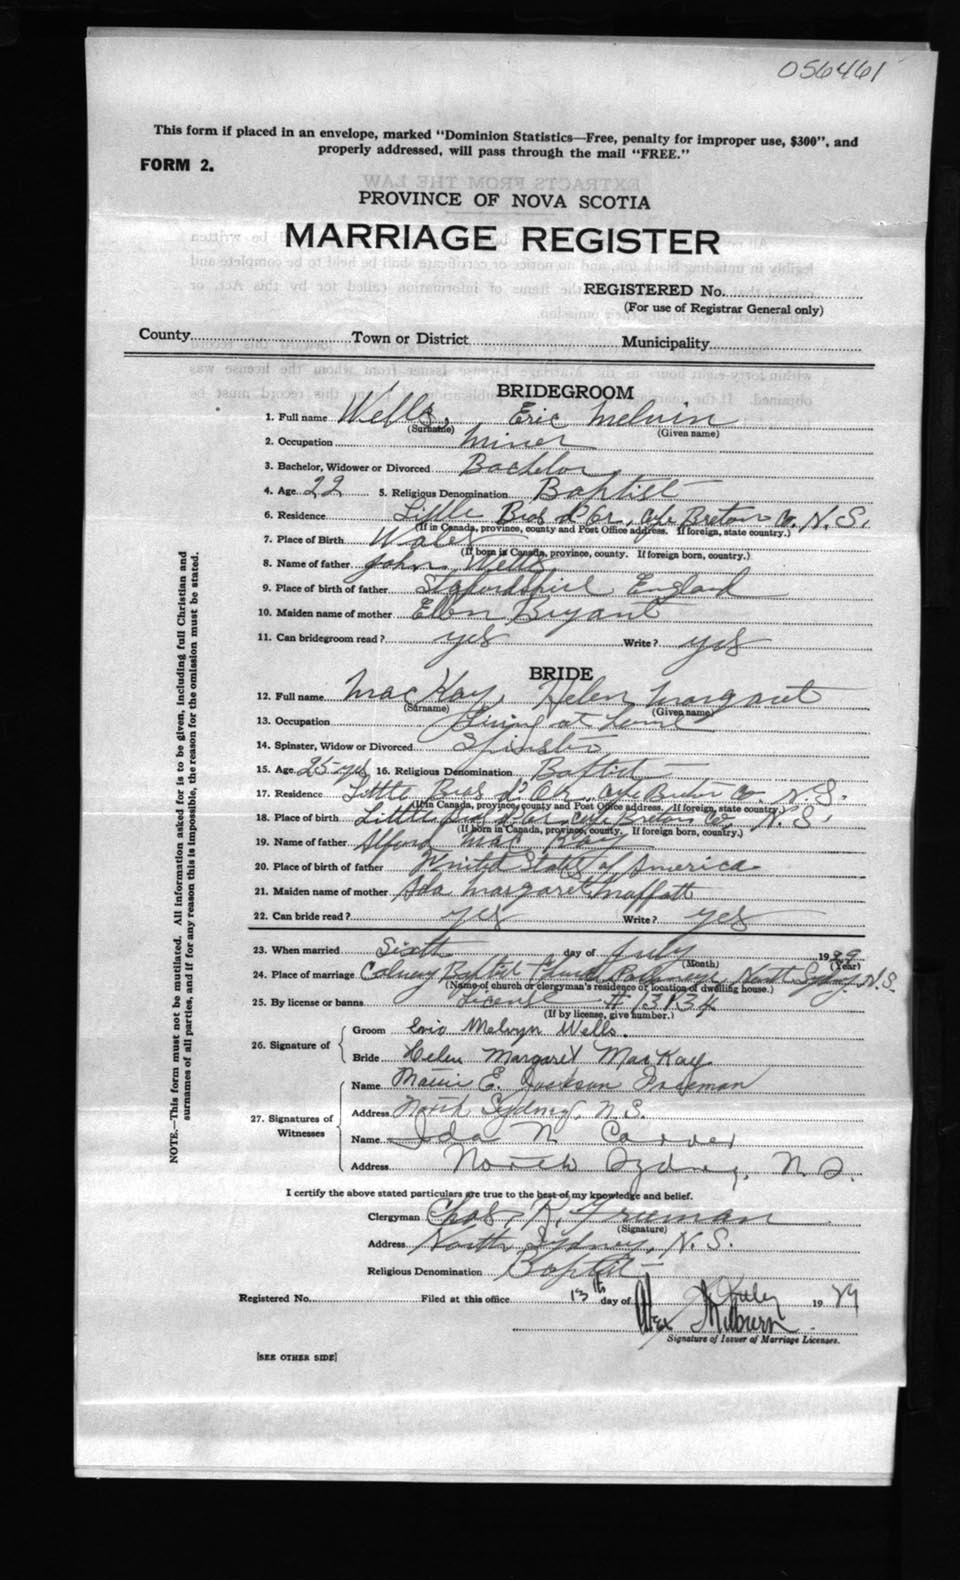 056461
This form if placed in an envelope, marked "Dominion Statistics—Free, penalty for improper use, $300", and
properly addressed, will pass through the mail "FREE."
FORM 2.
PROVINCE OF NOVA SCOTIA
MARRIAGE REGISTER
REGISTERED No.
(For use of Registrar General only)
County Town or District Municipality
BRIDEGROOM
1. Full name Wells, Eric Melvin
(Surname) (Given name)
2. Occupation Miner
3. Bachelor, Widower or Divorced Bachelor
4. Age 22 5. Religious Denomination Baptist
6. Residence Little Bras d'Or, Cape Breton Co. N.S.
(If in Canada, province, county and Post Office address. If foreign, state country.)
7. Place of Birth Wales
(If born in Canada, province, county. If foreign born, country.)
8. Name of father John Wells
9. Place of birth of father Staffordshire England
10. Maiden name of mother Ellen Bryant
11. Can bridegroom read? yes Write? yes
BRIDE
12. Full name MacKay, Helen Margaret
(Surname) (Given name)
13. Occupation Living at home
14. Spinster, Widow or Divorced Spinster
15. Age 25 yrs 16. Religious Denomination Baptist
17. Residence Little Bras d'Or, Cape Breton Co. N.S.
(If in Canada, province, county and Post Office address. If foreign, state country.)
18. Place of birth Little Bras d'Or, Cape Breton Co. N.S.
(If born in Canada, province, county. If foreign born, country.)
19. Name of father Alfred MacKay
20. Place of birth of father United States of America
21. Maiden name of mother Ada Margaret Moffatt
22. Can bride read? yes Write? yes
23. When married Sixth day of July 1929
(Month) (Year)
24. Place of marriage Calvary Baptist Church Parsonage, North Sydney, N.S.
(Name of church or clergyman's residence or location of dwelling house.)
25. By license or banns License # 13134
(If by license, give number.)
26. Signature of
Groom Eric Melvyn Wells.
Bride Helen Margaret MacKay
27. Signatures of Witnesses
Name E. Jackson Freeman
Address North Sydney, N.S.
Name Ida M. Carver
Address North Sydney, N.S.
I certify the above stated particulars are true to the best of my knowledge and belief.
Clergyman Chas. K. Freeman
(Signature)
Address North Sydney, N.S.
Religious Denomination Baptist
Registered No. Filed at this office 13th day of July 1929
Alex Milburn
Signature of Issuer of Marriage Licenses.
[SEE OTHER SIDE]
NOTE.—This form must not be mutilated. All information asked for is to be given, including full Christian and
surnames of all parties, and if for any reason this is impossible, the reason for the omission must be stated.